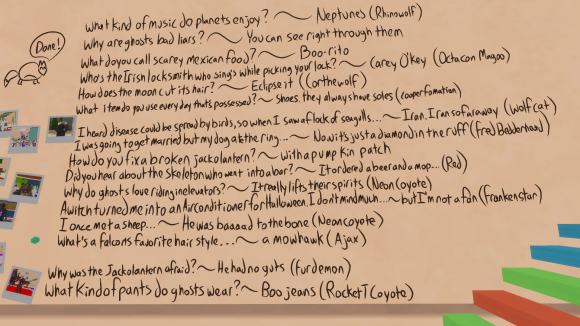 What kind of music do planets enjoy? ~ Neptunes (Rhinowolf)
Why are ghosts bad liars? ~ You can see right through them
Done!
What do you call scarey mexican food? ~ Boo-rito
Who's the Irish locksmith who sing's while picking your lock? ~ Carey O'key (Octacon Magoo)
How does the moon cut its hair? ~ Eclipse it (Corthewolf)
What item do you use every day thats possessed? ~ Shoes, they always have soles (cooperfomation)
I heard disease could be spread by birds, so when I saw a flock of seagulls... ~ I ran. I ran so far away (wolfcat)
I was going to get married but my dog ate the ring... ~ Now it's just a diamond in the ruff (Fred Bedderhead)
How do you fix a broken jackolantern? ~ with a pumpkin patch
Did you hear about the Skeleton who went into a bar? ~ It ordered a beer and a mop... (Red)
Why do ghosts love riding in elevators? ~ It really lifts their spirits (Neoncoyote)
A witch turned me into an Airconditioner for Halloween. I don't mind much... ~ but I'm not a fan (Frankenstar)
I once met a sheep... ~ He was baaad to the bone (Neoncoyote)
What's a falcons favorite hair style... ~ a mowhawk (Ajax)
Why was the Jackolantern afraid? ~ He had no guts (furdemon)
What Kind of pants do ghosts wear? ~ Boo jeans (RocketTCoyote)